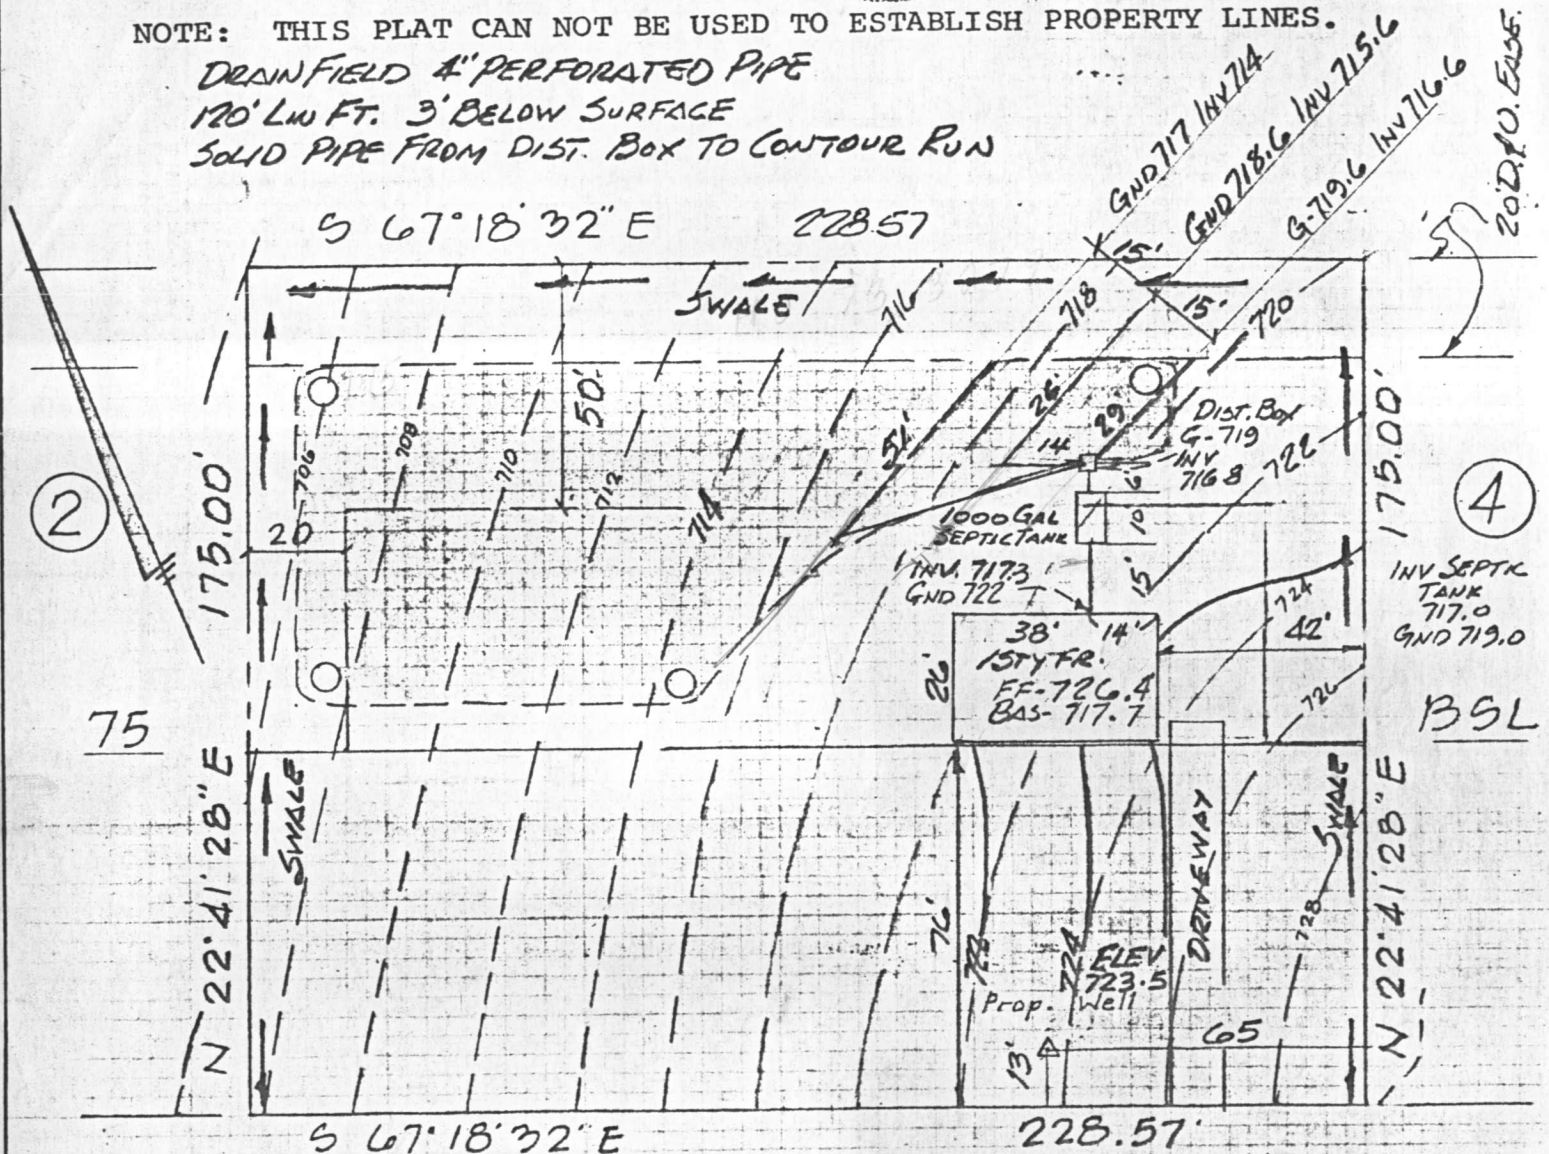 NOTE: THIS PLAT CAN NOT BE USED TO ESTABLISH PROPERTY LINES.
DRAINFIELD 4" PERFORATED PIPE
120' LIN FT. 3' BELOW SURFACE
SOLID PIPE FROM DIST. BOX TO CONTOUR RUN
GND 717 INV 714
GND 718.6 INV 715.6
G-719.6 INV 716.6
20' D.&U. EASE.
5'
S 67° 18' 32" E 228.57
15'
15'
SWALE
716
718
720
50'
706
708
710
712
714
51'
26'
29'
14
DIST. BOX
G-719
INV
716.8
722
6
10
1000 GAL
SEPTIC TANK
15'
INV. 717.3
GND 722
2
4
175.00'
175.00'
20
INV SEPTIC
TANK
717.0
GND 719.0
38' 14'
1 STY FR.
FF-726.4
BAS-717.7
26'
724
42'
726
75
BSL
SWALE
N 22° 41' 28" E
76'
722
724
ELEV
723.5
Prop. Well
13'
65
DRIVEWAY
728
SWALE
N 22° 41' 28" E
S 67° 18' 32" E
228.57'